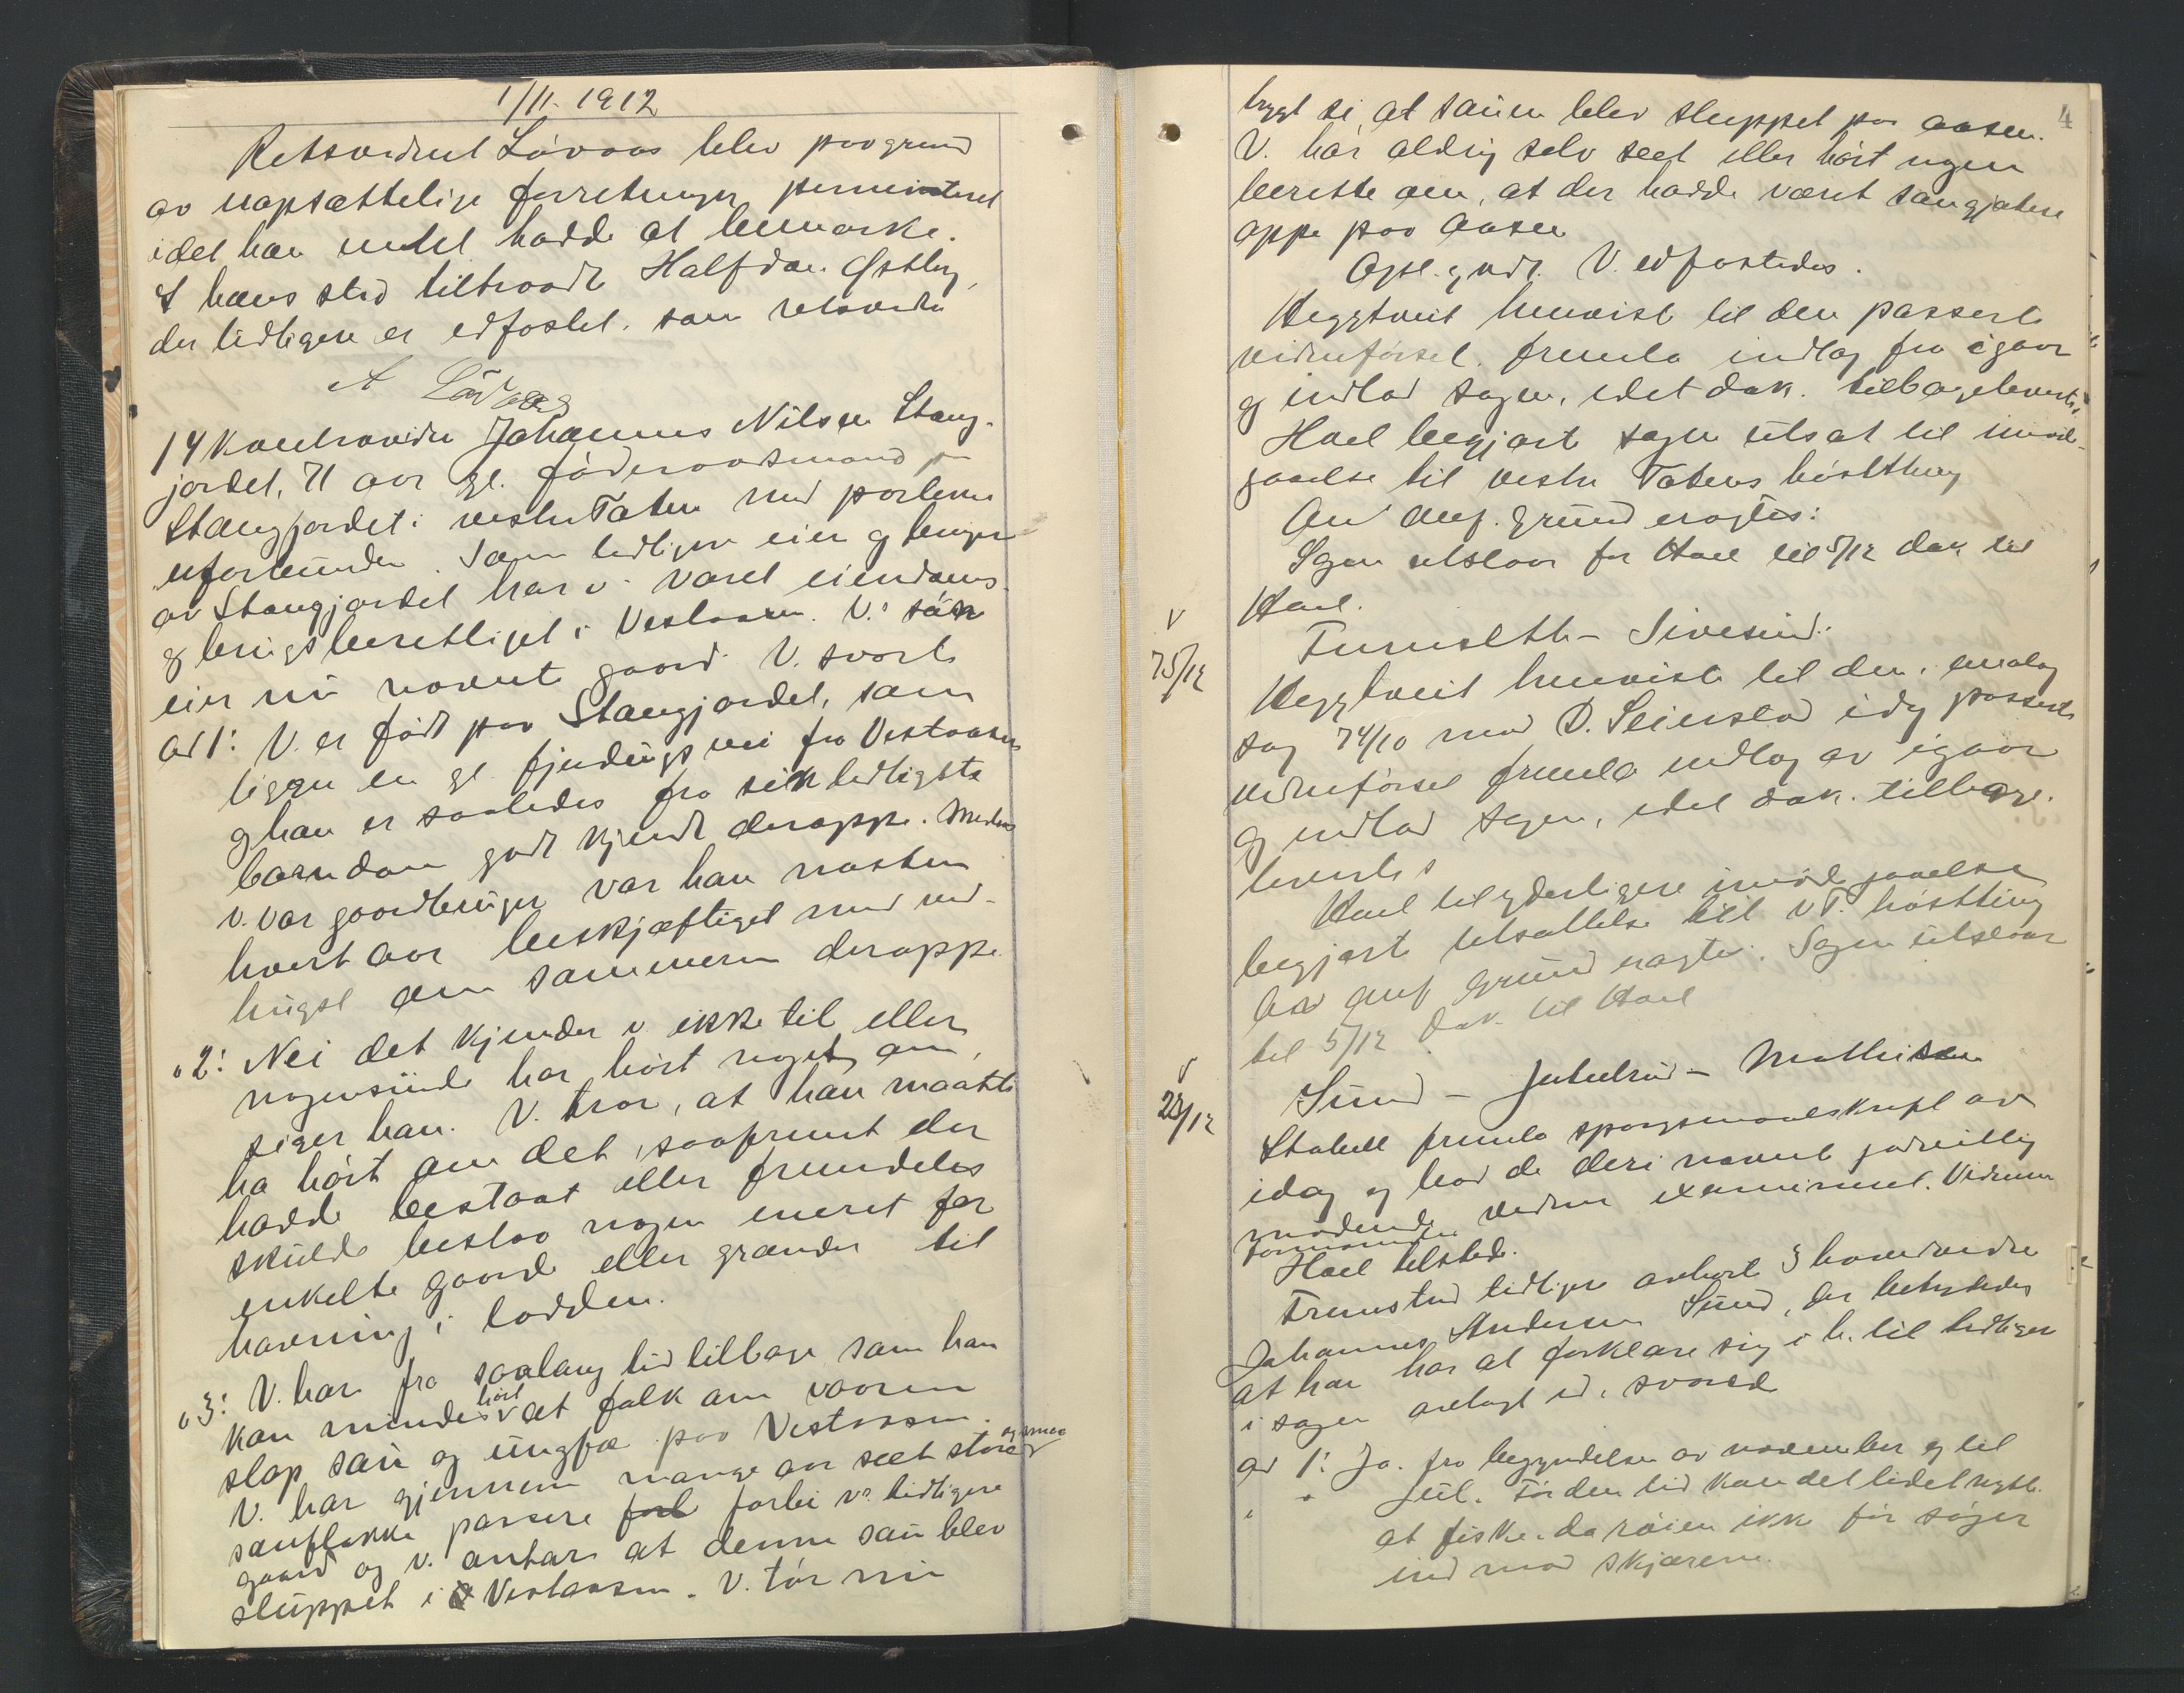 1/11 - 1912
Retsvidnet Lövaas blev paa grund
av uopsættelige forretninger permitteret
idet han intet hadde at bemærke.
I hans sted tiltraadte Halfdan Østby
der tidligere er edfæstet som retsvidne
A Lövaas
14 Kontravidne Johannes Nilsen Stang-
jordet, 71 aar gl. föderaadsmand paa
Stangjordet i vestre Toten med parterne
uforbunden. Som tidligere eier og bruger
av Stangjordet har v. været eiendoms-
og brugsberettiget i Vestaasen. V.s sön
eier nu nævnte gaard. V. svarte
ad 1: V. er födt paa Stangjordet, som
ligger en gl. fjerdings vei fra Vestaasen
og han er saaledes fra sin tidligste
barndom godt kjendt deroppe. Mens
v. var gaardbruger var han næsten
hvert aar beskjæftiget med ved-
hugst om sommeren deroppe.
" 2: Nei det kjender v ikke til eller
nogensinde har hört noget om,
siger han. V. tror, at han maatte
ha hört om det, saafremt der
hadde bestaat eller fremdeles
skulde bestaa nogen eneret for
enkelte gaarde eller grænder til
havning i lodden.
" 3: V. har fra saalang tid tilbage som han
kan mindes hört at folk om vaaren
slap sau og ungfæ paa Vestaasen.
V. har gjennem mange aar seet store og smaa
sauflokke passere forb forbi v's tidligere
gaard og v. antar at denne sau blev
sluppet i Vestaasen. V. tör nu
4
trygt si at sauen blev sluppet paa aasen.
V. har aldrig selv seet eller hört nogen
berette om, at der hadde været saugjetere
oppe paa aasen
Opl. g vedt. V. edfæstedes.
Heggtveit henviste til den passerte
vidneförsel, fremla indlæg fra igaar
og indlod sagen, idet dok. tilbageleverte.
Hoel begjærte sagen utsat til imöte-
gaaelse til vestre Totens höstting
Av anf. grund eragtes:
Sagen utstaar for Hoel til 5/12 dok til
Hoel.
v
75/12
Furuseth - Sivesind:
Heggtveit henviste til den i analog
sag 74/10 mod D. Seierstad idag passerte
vidneförsel fremla indlæg av igaar
og indlod sagen, idet dok. tilbage-
levertes
Hoel til yderligere imöte gaaelse
begjærte utsættelse til v T. höstting
Av anf grund eragtes: Sagen utstaar
til 5/12 dok til Hoel
v
28/12
Sund - - Mathisen
Stabell fremla spörgsmaalskrift av
idag og bad de deri nævnte godvillig
mödende vidner examineret. Vidnerne
formanedes
Hoel tilstede.
Fremstod tidligere avhört 3 hovedvidne
Johannes Andersen Sund, der betydedes
at han har at forklare sig i h. til tidligere
i sagen avlagt ed, svared
ad 1: Ja. fra begyndelsen av november og til
" " jul. För den tid kan det lidet nytte
" at fiske, da röien ikke för söger
ind mod skjærene.